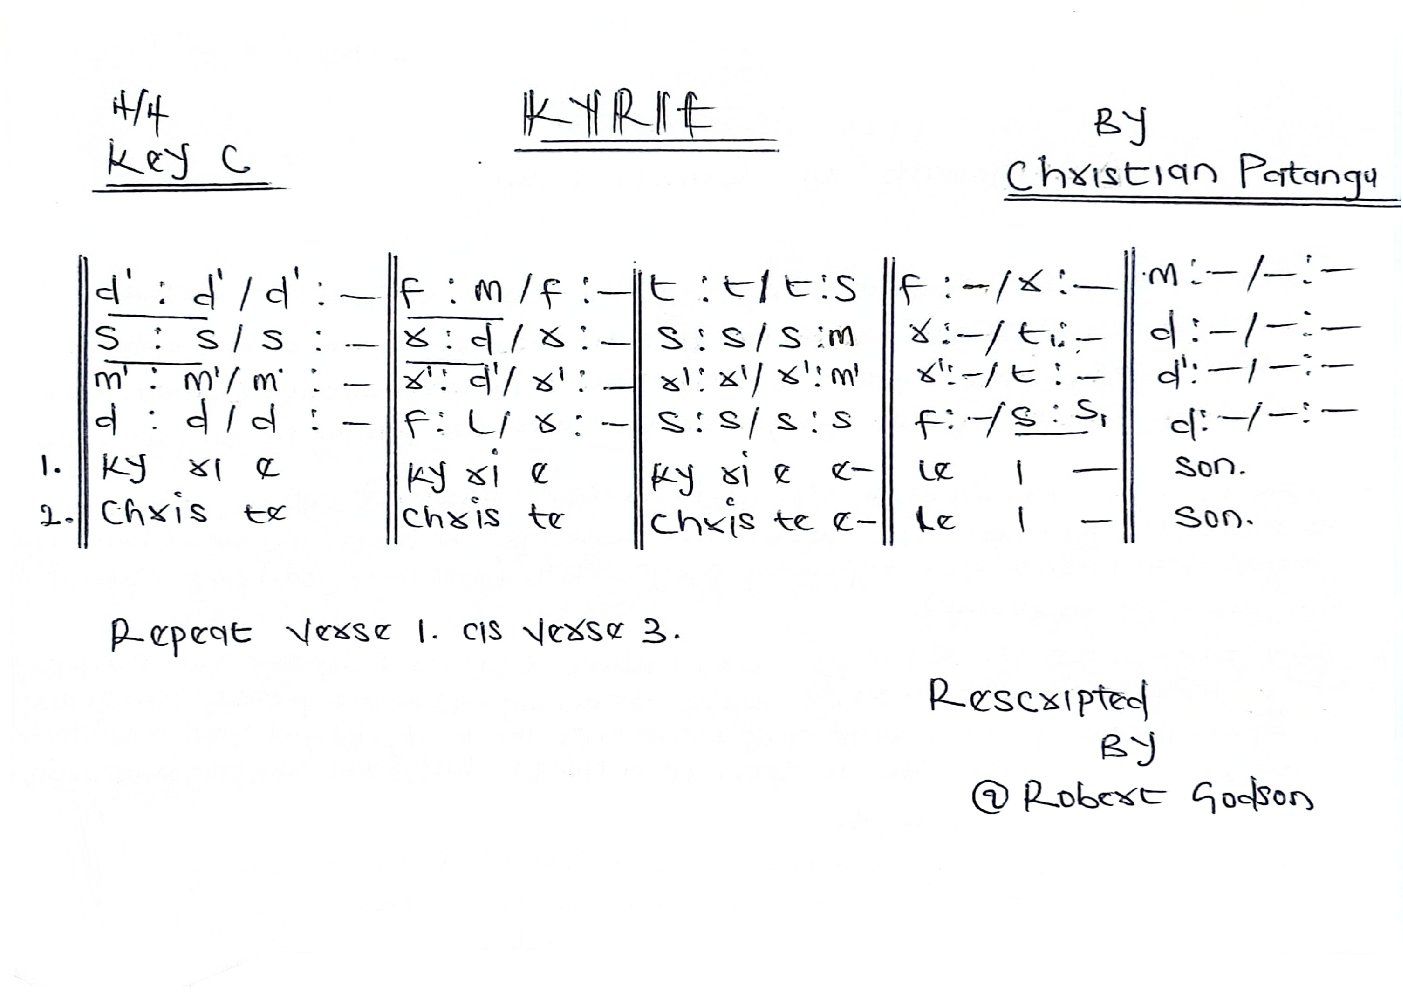 4/4 KYRIE By
Key C Christian Patangu
d' : d' / d' : — f : m / f : — t : t / t : s f : - / r : — m : - / - : -
s : s / s : — r : d / r : — s : s / s : m r : - / t₁ : - d : - / - : -
m' : m' / m' : - r' : d' / r' : - r' : r' / r' : m' r' : - / t : - d' : - / - : -
d : d / d : - f : l / r : - s : s / s : s f : - / s : s₁ d : - / - : -
1. Ky ri e Ky ri e Ky ri e e- le i — son.
2. Chris te Chris te Chris te e- le i - son.
Repeat verse 1. as verse 3.
Rescripted
By
@ Robert Godson